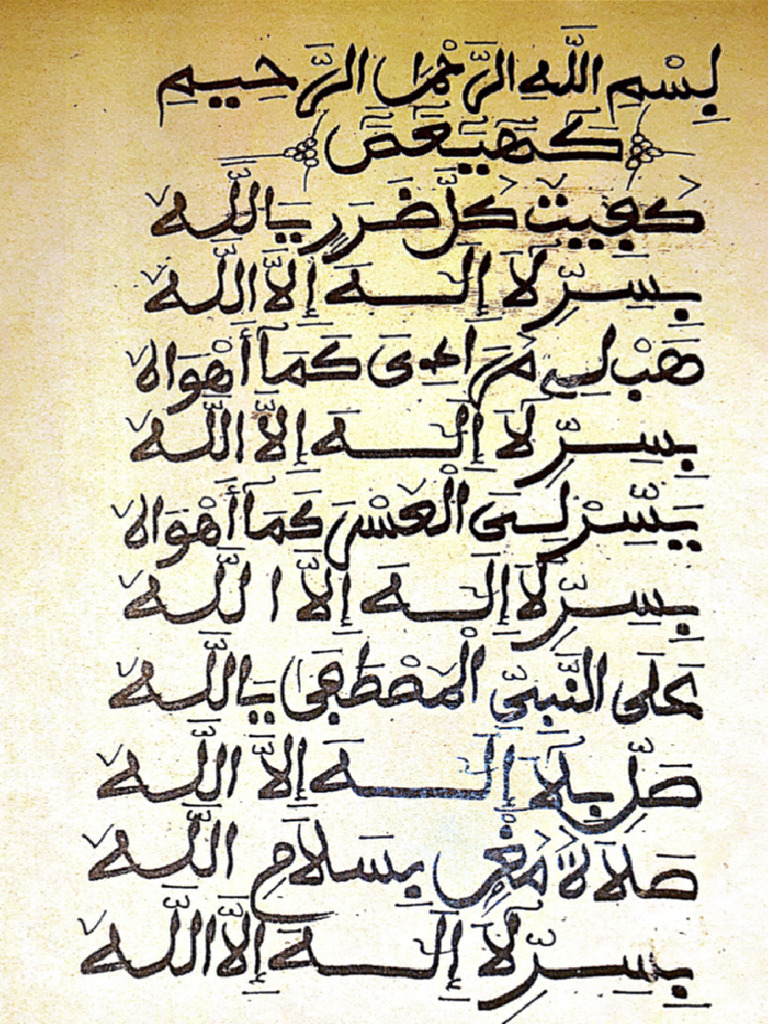 بِسْمِ اللَّهِ الرَّحْمَنِ الرَّحِيمِ
كَهَيَعَصَ
كفيت كلَّ ضَرَرٍ يَاللَّهُ
بِسِرِّ لَا إِلَهَ إِلَّا اللَّهُ
هَبْ لِي مُرَادِى كَمَا أَهْوَاهُ
بِسِرِّ لَا إِلَهَ إِلَّا اللَّهُ
يَسِّرْ لِىَ الْعُسْرَ كَمَا أَهْوَاهُ
بِسِرِّ لَا إِلَهَ إِلَّا اللَّهُ
عَلَى النَّبِىِّ الْمُصْطَفَى يَاللَّهُ
صَلِّ بِلَا إِلَهَ إِلَّا اللَّهُ
صَلَاةَ بِسَلَامٍ اللَّهُ
بِسِرِّ لَا إِلَهَ إِلَّا اللَّهُ